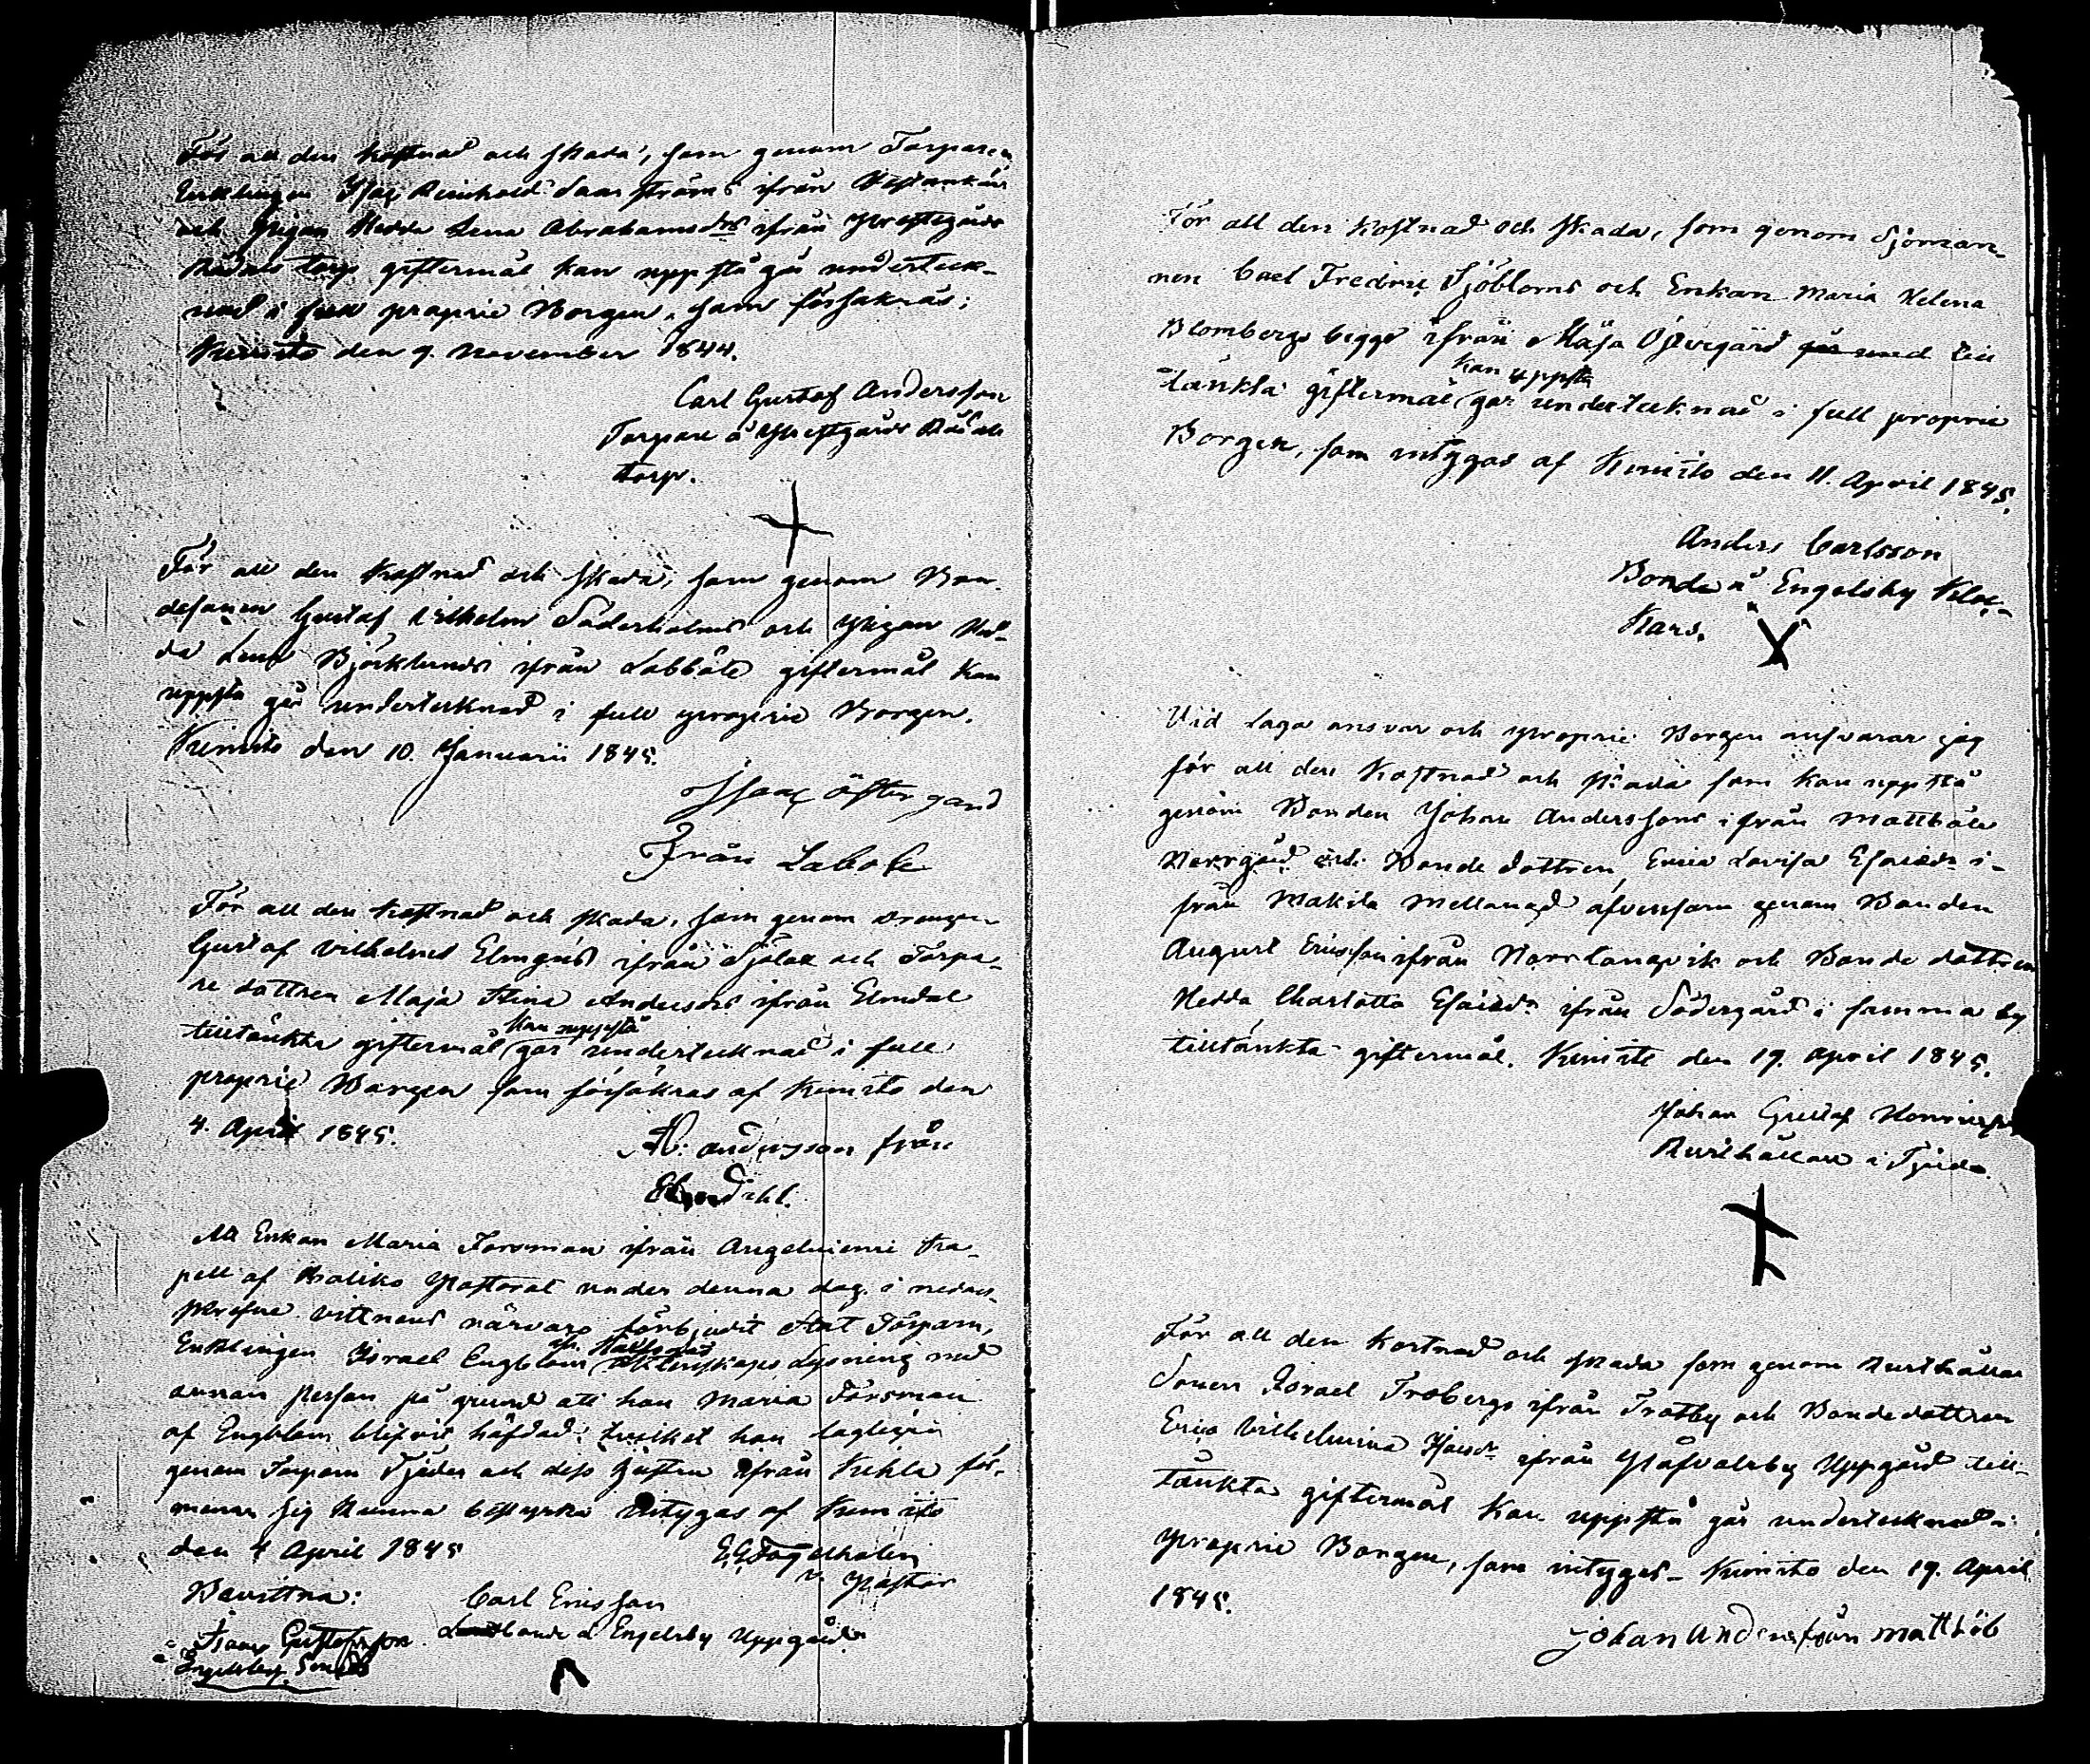 För all den kostnad och skada, som genom Torparen
Enklingen Isac Reinhold Saarströms ifrån
och Pigan Hedda Lena Abrahamsdrs ifrån Prestgårds
Rådals torp giftermål kan uppstå går underteck-
nad i full proprie Borgen, som försäkras;
Kimito den 9. November 1844.
Carl Gustaf Andersson
Torpare å Prestgårds Rådals
torp.
För all den kostnad och skada, som genom Bon-
desonen Gustaf Vilhelm Söderholms och Pigan Hed-
da Lena Björklunds ifrån Labböle giftermål kan
uppstå går undertecknad i full proprie Borgen.
Kimito den 10. Januarii 1845.
Isaac östergård
Från Labole
För all den kostnad och skada, som genom Drängen
Gustaf Vilhelms Elmgrens ifrån Sjölax och Torpa-
re dottren Maja Stina Anders ifrån Elmdal
kan uppstå
tilltänkta giftermål går undertecknad i full
proprie Borgen som försäkras af Kimito den
4. April 1845.
A: andersson från
Elmdahl.
Att Enkan Maria Forsman ifrån Angelniemi ka-
pell af Haliko Pastorat under denna dag i nedan-
skrefne vittnens närvaro förbjudit Torparn,
Enklingen Israel Engblom äktenskaps Lysning med
annan person på grund att hon Maria Forsman
af Engblom blifvit häfdad; hvilket hon lagligen
genom Torparn Tjäder och dess hustru ifrån Kihla för-
menar sig kunna bestyrka intygas af Kimito
den 4 April 1845
E, G, Fogelholm
v. Pastor
Bevittna:
Carl Ericsson
Isaac Gustafsson
Landbonde å Engelsby Uppgård
Engelsby
För all den kostnad och skada, som genom Sjöman-
nen Carl Fredric Sjöbloms och Enkan Maria Helena
Blombergs begge ifrån Måsa Östergård går med till
kan uppstå
-tänkta giftermål går undertecknad i full proprie
Borgen, som intygas af Kimito den 11. April 1845.
Anders Carlsson
Bonde å Engelsby Kloc-
kars.
Vid laga ansvar och proprie Borgen ansvarar jag
för all den kostnad och skada som kan uppstå
genom Bonden Johan Anderssons ifrån Mattböle
Norrgård och Bonde dottren Erica Lovisa Esaiædr i-
från Makila Mellangård äfvensom genom Bonden
August Ericsson ifrån Norrlangvik och Bonde dottren
Hedda Charlotta Esaiædr ifrån Södergård i samma by
tilltänkta giftermål. Kimito den 19. April 1845.
Johan Gustaf
Rusthållare i Tjuda.
För all den kostnad och skada som genom Rusthållar
Sonen Israel Frobergs ifrån Trotby och Bondedottren
Erica Vilhelmina Isacsdr ifrån Påfvalsby Uppgård till-
tänkta giftermål kan uppstå går undertecknad i
proprie Borgen, som intygas – Kimito den 19. April
1845.
johan Anders från mattböl